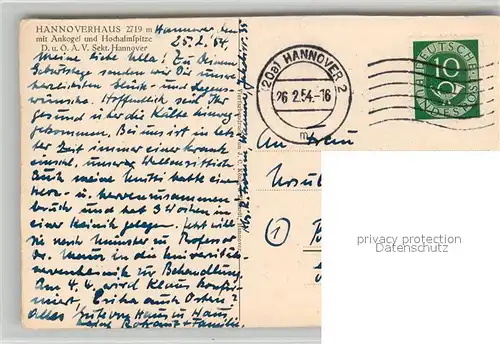 HANNOVERHAUS 2719 m
mit Ankogel und Hochalmspitze
D. u. Ö. A. V. Sekt. Hannover
Hannover, den
25.2.54.
Meine liebe Ulla! Zu Deinem
Geburtstage senden wir Dir unsere
herzlichsten Glück- und Segens-
wünsche. Hoffentlich seid Ihr
gesund über die Kälte hinweg-
gekommen. Bei uns ist in letz-
ter Zeit immer einer krank
einschl. unserer Wellensittiche.
Auch meine Mutti hatte einen
Herz- u. Nervenzusammen
bruch und hat 3 Wochen in
einer Klinik gelegen. Jetzt will
sie nach Münster zu Professor
Dr. in die Universitäts-
nervenklinik zur Behandlung.
Am 4.4. wird Klaus konfir-
miert, Erika auch Ostern?
Alles Gute von Haus zu Haus
(20a) HANNOVER 2
26.2.54.-16
m
DEUTSCHE
10
BUNDESPOST
An Frau
Ursul
privacy protection
www.ansichtskarten-center.de